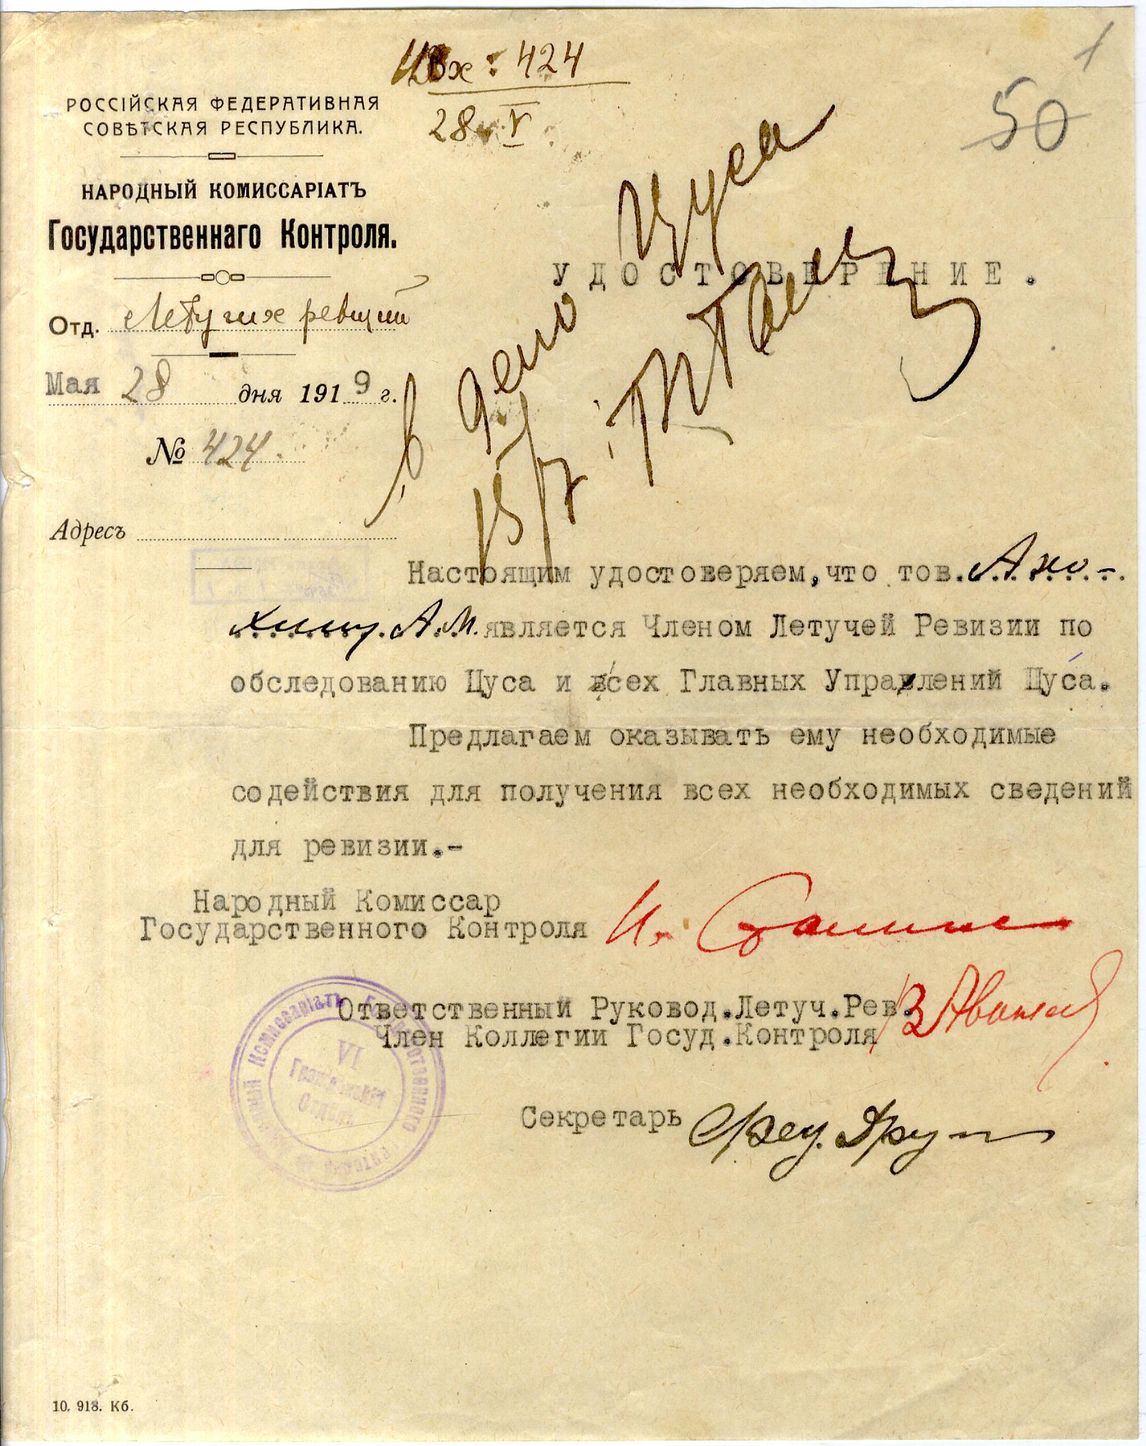 Вх: 424
28 V
1
50
РОССІЙСКАЯ ФЕДЕРАТИВНАЯ
СОВѢТСКАЯ РЕСПУБЛИКА.
НАРОДНЫЙ КОМИССАРІАТЪ
Государственнаго Контроля.
Отд. Летучих ревизий
Мая 28 дня 1919 г.
№ 424.
Адресъ
в дело Цуса
15/7
УДОСТОВЕРЕНИЕ.
Настоящим удостоверяем, что тов. Ано-
хину. А.М. является Членом Летучей Ревизии по
обследованию Цуса и всех Главных Управлений Цуса.
Предлагаем оказывать ему необходимые
содействия для получения всех необходимых сведений
для ревизии.-
Народный Комиссар
Государственного Контроля И. Сталин
Ответственный Руковод.Летуч.Рев.
Член Коллегии Госуд.Контроля
В Аванесов
Секретарь
VI
10. 918. Кб.